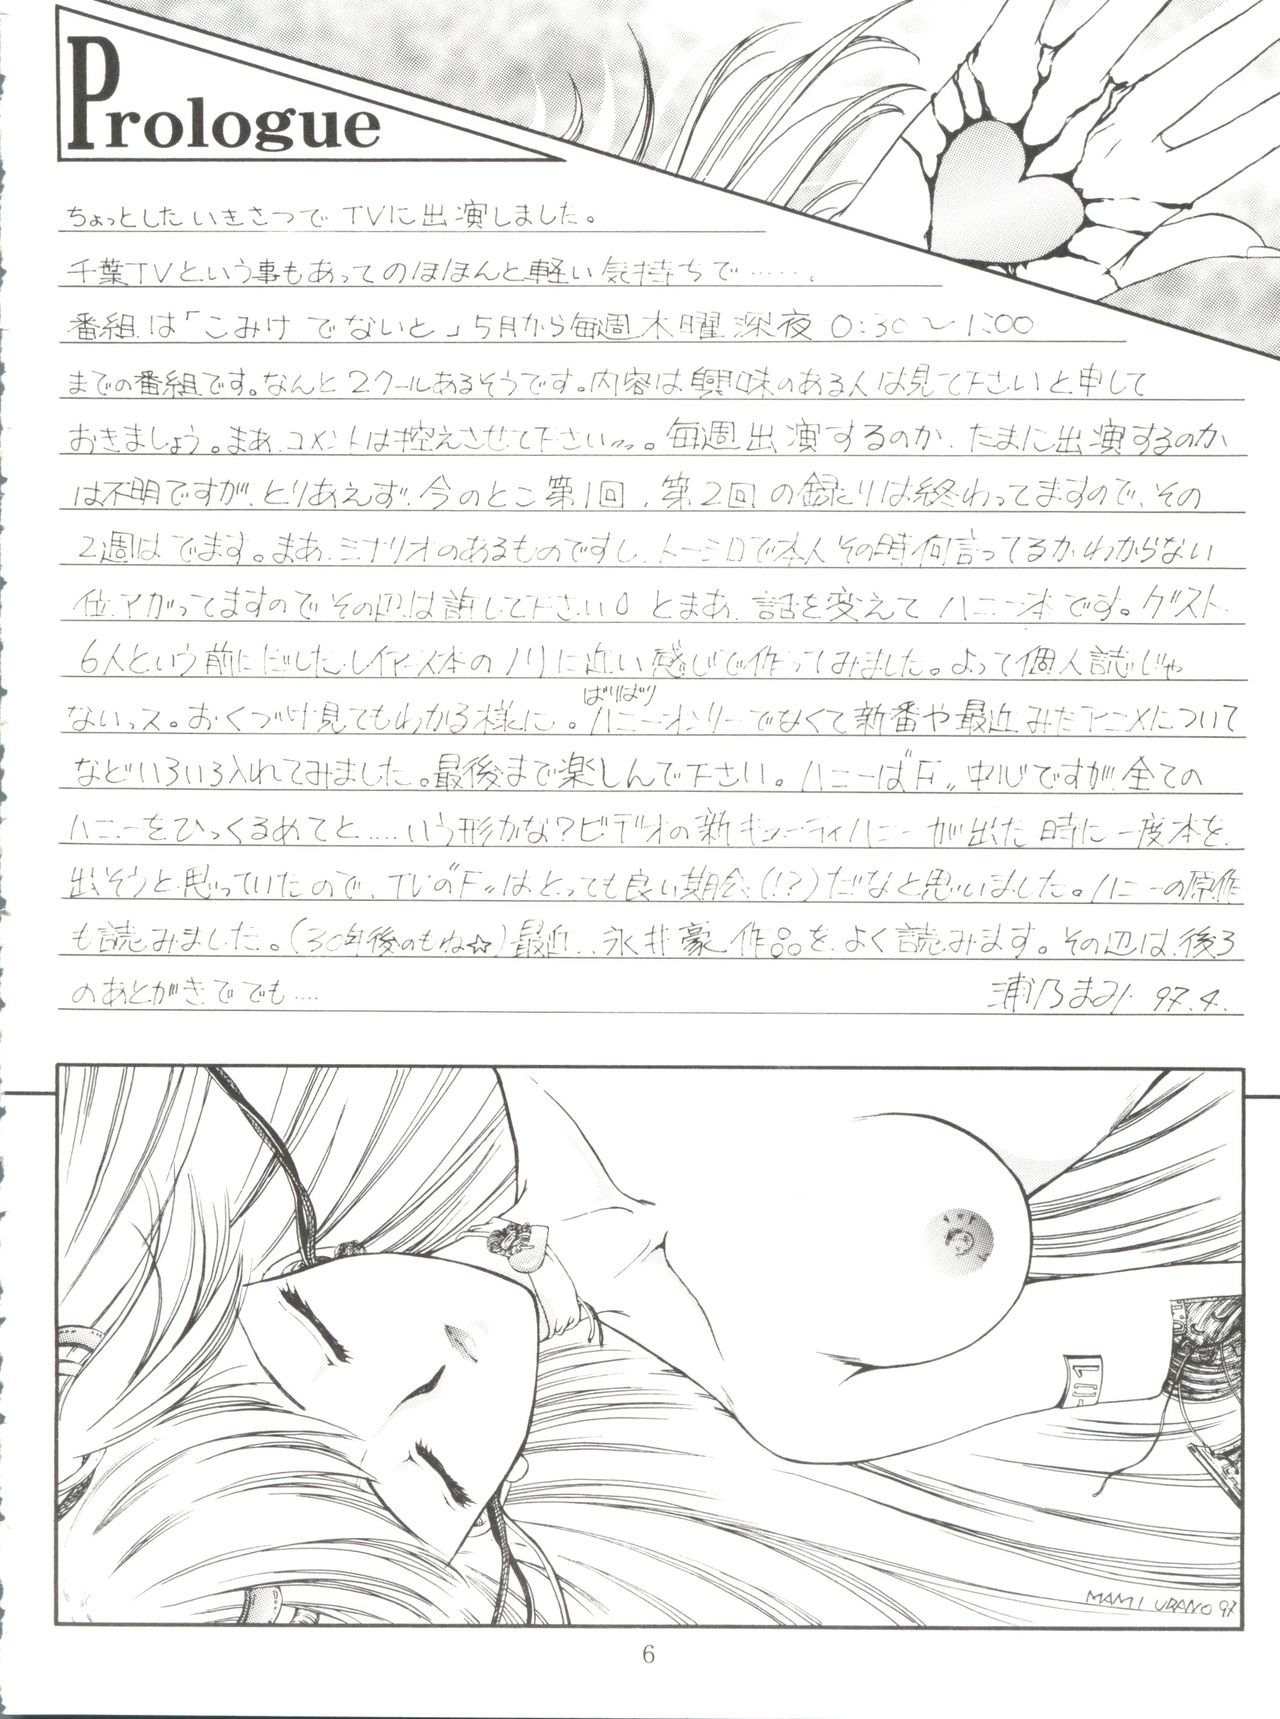 Prologue
ちょっとしたいきさつでTVに出演しました。
千葉TVという事もあってのほほんと軽い気持ちで……。
番組は「こみけでないと」5月から毎週木曜深夜0:30〜1:00
までの番組です。なんと2クールあるそうです。内容は興味のある人は見て下さいと申して
おきましょう。まあ、コメントは控えさせて下さいっっ。毎週出演するのか、たまに出演するのか
は不明ですが、とりあえず、今のとこ第1回、第2回の録とりは終わってますので、その
2週はでます。まあ、シナリオのあるものですし、トーシロで本人その時何言ってるかわからない
位、アガってますのでその辺は許して下さい。とまあ、話を変えてハニー本です。ゲスト
6人という前にだしたレイアース本のノリに近い感じで作ってみました。よって個人誌じゃ
ばりばり
ないっス。おくづけ見てもわかる様に。ハニーオンリーでなくて新番や最近みたアニメについて
などいろいろ入れてみました。最後まで楽しんで下さい。ハニーは"F"中心ですが、全ての
ハニーをひっくるめてと……いう形かな?ビデオの新キューティハニーが出た時に一度本を
出そうと思っていたので、TVの"F"はとっても良い期会(!?)だなと思いました。ハニーの原作
も読みました。(30年後のもね☆)最近、永井豪作品をよく読みます。その辺は、後ろ
のあとがきででも……
浦乃まみ 97.4.
-01
MAMI URANO 97
6